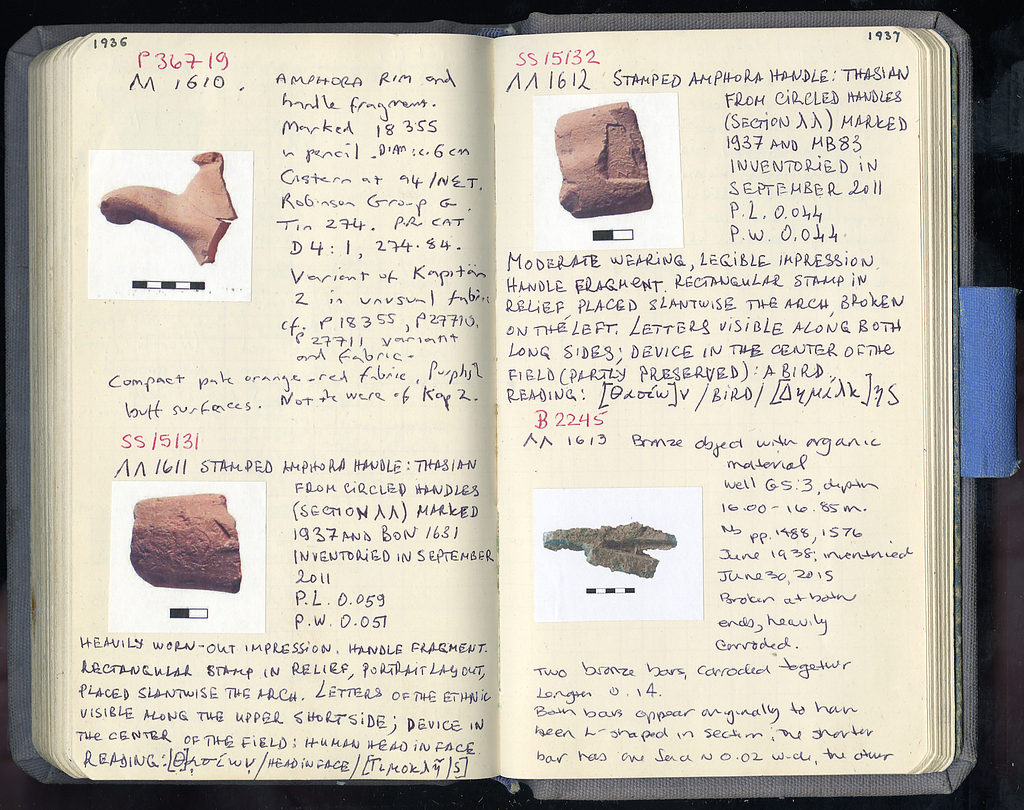 1936
P 36719
ΛΛ 1610.
AMPHORA RIM and
handle fragment.
Marked 18355
in pencil. DIAM: c. 6 cm
Cistern at 94/NET.
Robinson Group G.
Tin 274. P.R CAT
D4:1, 274.84.
Variant of Kapitän
2 in unusual fabric
cf. P 18355, P27710,
P 27711 variant
and fabric.
Compact pale orange-red fabric,
buff surfaces. Not the ware of Kap 2.
SS 15131
ΛΛ 1611 STAMPED AMPHORA HANDLE: THASIAN
FROM CIRCLED HANDLES
(SECTION ΛΛ) MARKED
1937 AND BON 1631
INVENTORIED IN SEPTEMBER
2011
P.L. 0.059
P.W. 0.051
HEAVILY WORN-OUT IMPRESSION. HANDLE FRAGMENT.
RECTANGULAR STAMP IN RELIEF, PORTRAIT LAYOUT,
PLACED SLANTWISE THE ARCH. LETTERS OF THE ETHNIC
VISIBLE ALONG THE UPPER SHORT SIDE; DEVICE IN
THE CENTER OF THE FIELD: HUMAN HEAD IN FACE.
READING: [Θ]ασίων / HEAD IN FACE / [Τιμοκλῆ|ς]
1937
SS 15132
ΛΛ 1612 STAMPED AMPHORA HANDLE: THASIAN
FROM CIRCLED HANDLES
(SECTION ΛΛ) MARKED
1937 AND MB83
INVENTORIED IN
SEPTEMBER 2011
P.L. 0.044
P.W. 0.044
MODERATE WEARING, LEGIBLE IMPRESSION.
HANDLE FRAGMENT. RECTANGULAR STAMP IN
RELIEF, PLACED SLANTWISE THE ARCH, BROKEN
ON THE LEFT. LETTERS VISIBLE ALONG BOTH
LONG SIDES; DEVICE IN THE CENTER OF THE
FIELD (PARTLY PRESERVED): A BIRD.
READING: [Θασίω]ν / BIRD / [Δημάλκ]ης
B 2245
ΛΛ 1613 Bronze object with organic
material
Well G5:3, depth
16.00-16.85 m.
Nb pp. 1488, 1576
June 1938; inventoried
June 30, 2015
Broken at both
ends, heavily
corroded.
Two bronze bars, corroded together
Length 0.14.
Both bars appear originally to have
been L-shaped in section; the shorter
bar has one face ~ 0.02 wide, the other